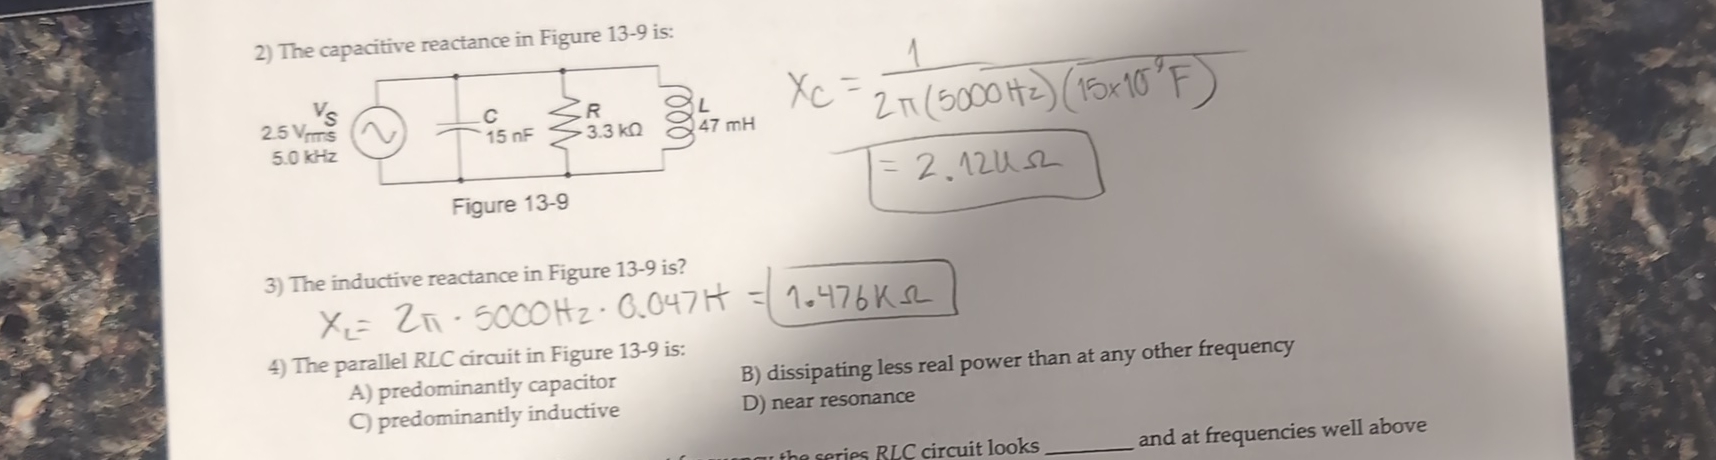 2) The capacitive reactance in Figure 13-9 is:
Xc = 1
2π(5000Hz)(15x10⁻⁹F)
= 2.12kΩ
Vs
2.5 Vrms
5.0 kHz
C
15 nF
R
3.3 kΩ
L
47 mH
Figure 13-9
3) The inductive reactance in Figure 13-9 is?
XL= 2π · 5000Hz · 0.047H = 1.476KΩ
4) The parallel RLC circuit in Figure 13-9 is:
A) predominantly capacitor
B) dissipating less real power than at any other frequency
C) predominantly inductive
D) near resonance
the series RLC circuit looks ______ and at frequencies well above